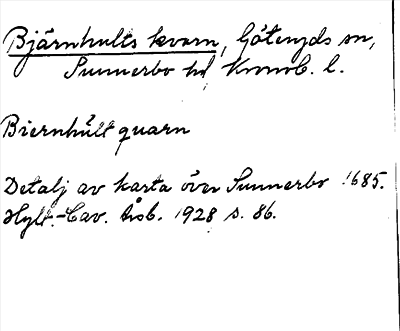 Bjärnhults kvarn, Götenyds sn,
Sunnerbo hd, Kronob. l.
Biernhúlt quarn
Detalj av karta över Sunnerbo 1685.
Hylt.-Cav. Årsb. 1928 s. 86.